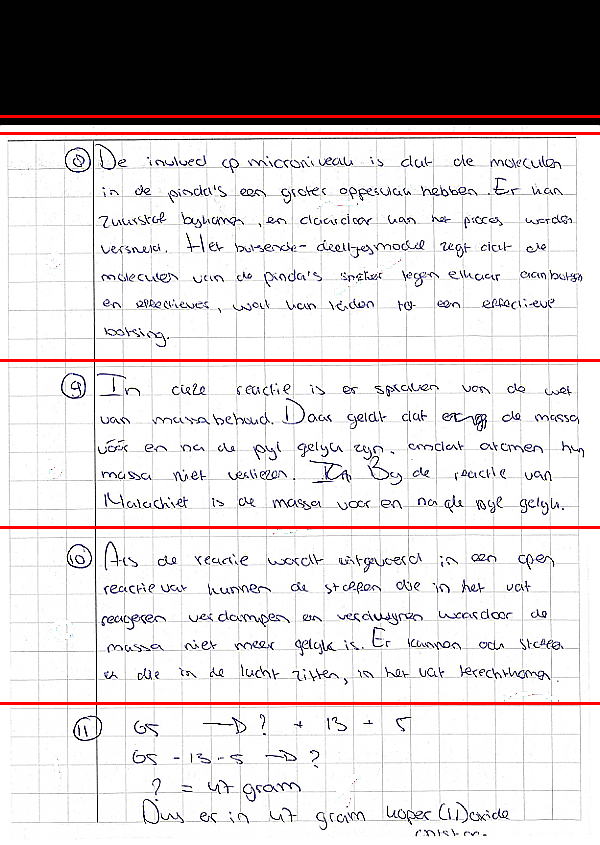 8 De invloed op microniveau is dat de moleculen
in de pinda's een groter oppervlak hebben. Er kan
zuurstof bijkomen, en daardoor kan het proces worden
versneld. Het botsende-deeltjesmodel zegt dat de
moleculen van de pinda's sneller tegen elkaar aanbotsen
en effectiever, wat kan leiden tot een effectieve
botsing.
9 In deze reactie is er spraken van de wet
van massabehoud. Daar geldt dat de massa
vóór en na de pijl gelijk zijn, omdat atomen hun
massa niet verliezen. Bij de reactie van
Malachiet is de massa voor en na de pijl gelijk.
10 Als de reactie wordt uitgevoerd in een open
reactievat kunnen de stoffen die in het vat
reageren verdampen en verdwijnen waardoor de
massa niet meer gelijk is. Er kunnen ook stoffen
die in de lucht zitten, in het vat terechtkomen.
11 65 → ? + 13 + 5
65 - 13 - 5 → ?
? = 47 gram
Dus er in 47 gram koper(II)oxide